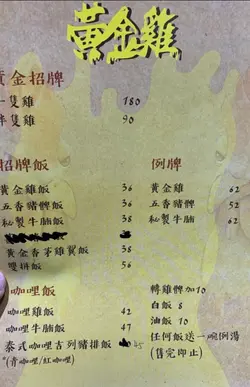 黃金雞
黃金招牌
一隻雞 180
半隻雞 90
招牌飯
黃金雞飯 36
五香豬髀飯 36
秘製牛腩飯 38
38
黃金香茅雞翼飯 38
雙拼飯 56
咖喱飯
咖喱雞飯 42
咖喱牛腩飯 47
泰式咖喱吉列豬排飯 45
*(青咖喱/紅咖喱)
例牌
黃金雞 62
五香豬髀 52
秘製牛腩 62
轉雞髀加10
白飯 8
油飯 10
任何飯送一碗例湯
(售完即止)